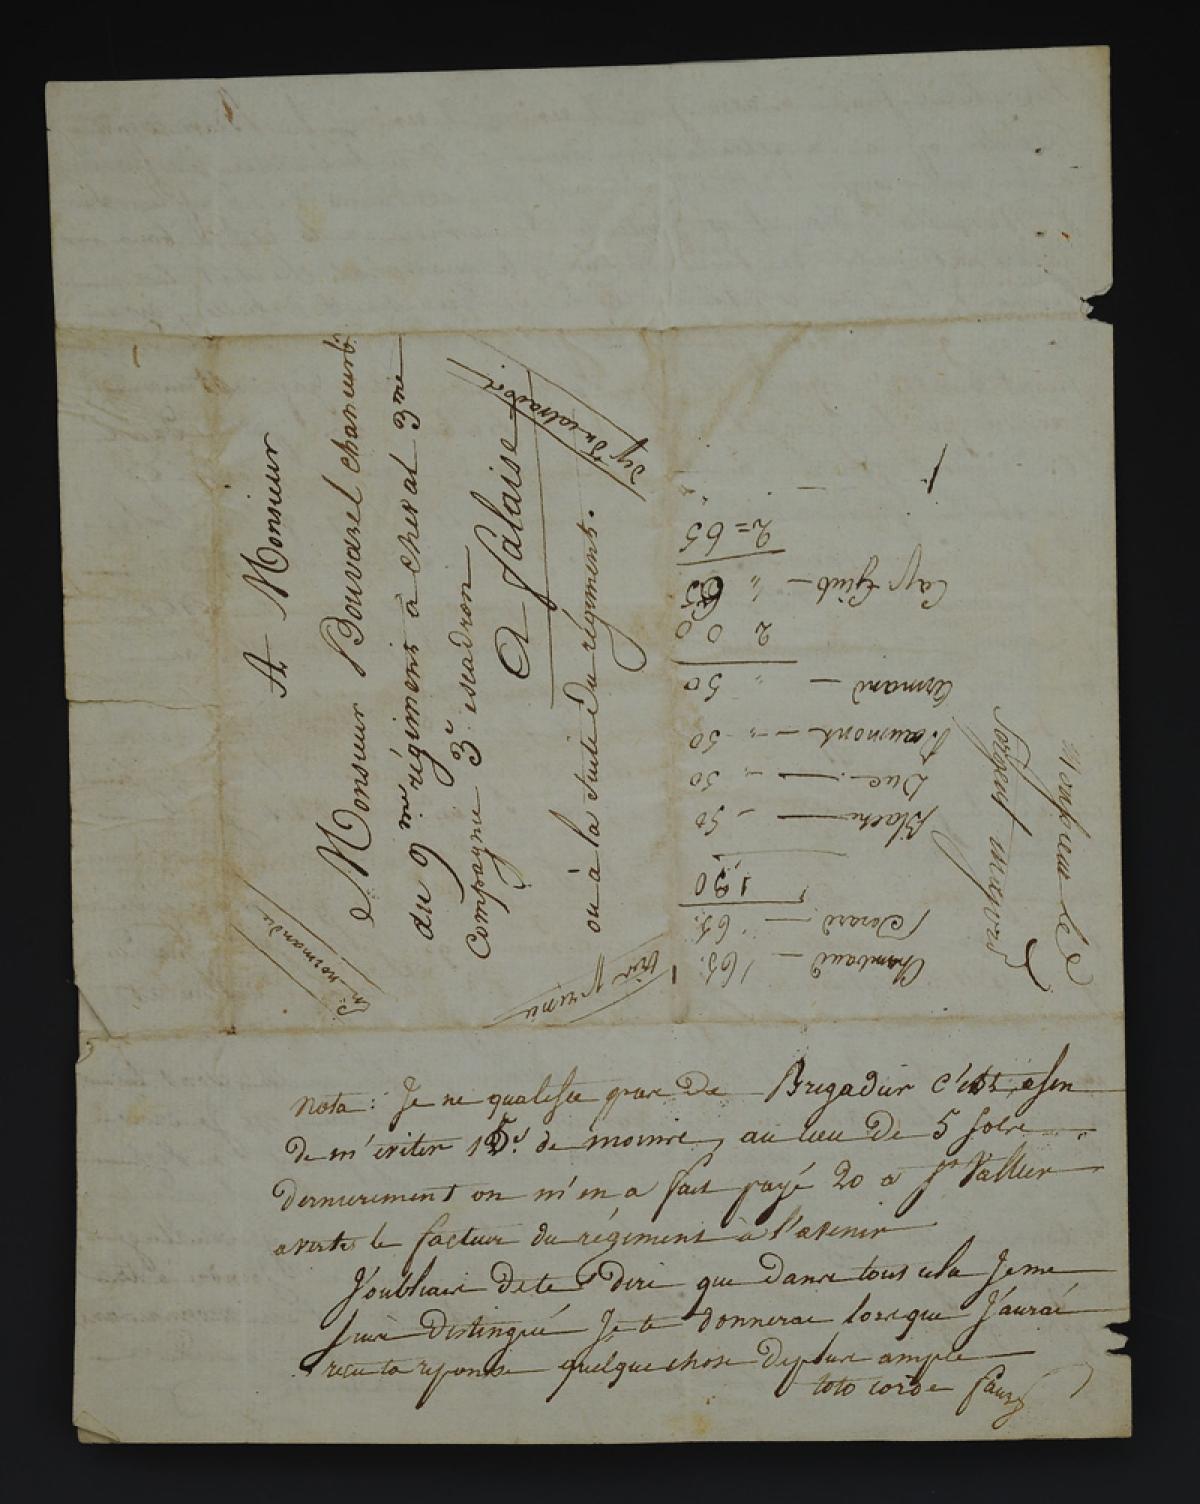 A Monsieur
Monsieur Bouvarel chasseur
du 9me régiment à cheval 3me
compagnie 3e escadron
A falaise
ou à la suite du régiment.
en normandie
très pressée
Chambaud — 65.
Gerard — 65.
1,30
Blache — 50
Duc — 50
Beaumont — 50
Armand — 50
2 00
Cap. Giub — 65
2 = 65
Monsieur le
Sergent major
nota: Je ne qualifie pas de Brigadier c'est afin
de m'eviter 15s. de moins, au lieu de 5 sols
dernierement on m'en a fait payé 20 a St Vallier
avertis le facteur du régiment à l'avenir
J'oubliais de te dire que dans tous cela Je me
suis distingué Je te donnerai lorsque J'aurai
recu ta reponse quelque chose de plus ample
toto corde